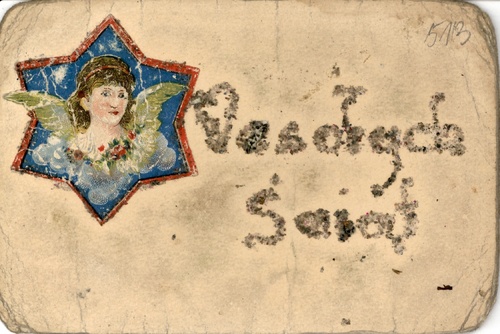 513
Wesołych
Świąt